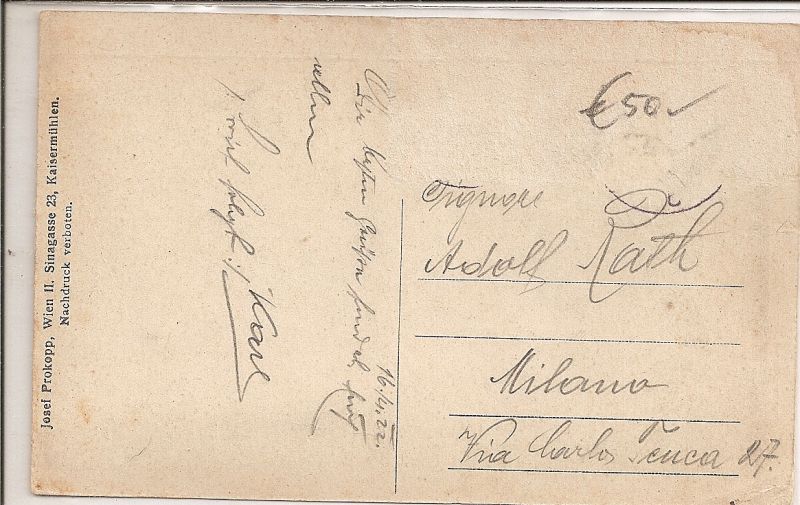 Josef Prokopp, Wien II. Sinagasse 23, Kaisermühlen.
Nachdruck verboten.
16.4.22.
Die besten Grüße sendet
Karl
€50
Signore
Adolf Rath
Milano
Via Carlo Tenca 27.